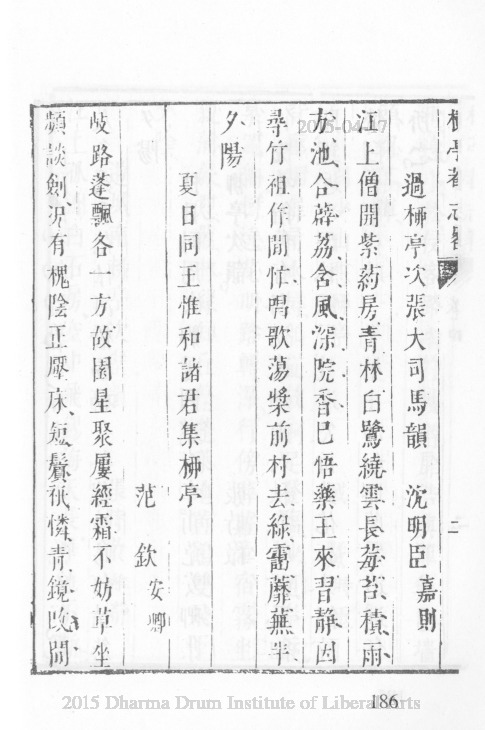 過栁亭次張大司馬韻 沈明臣 嘉則
江上僧開紫葯房青林白鷺繞雲長莓苔積雨
方池合薜荔含風深院香已悟藥王來習靜因
尋竹祖作閒忙唱歌蕩槳前村去綠靄蘼蕪半
夕陽
夏日同王惟和諸君集栁亭
范欽 安卿
歧路蓬飄各一方故園星聚屢經霜不妨草坐
頻談劍况有槐陰正壓床短鬢祇憐青鏡改閒
二
2015-04-17
186
2015 Dharma Drum Institute of Liberal Arts